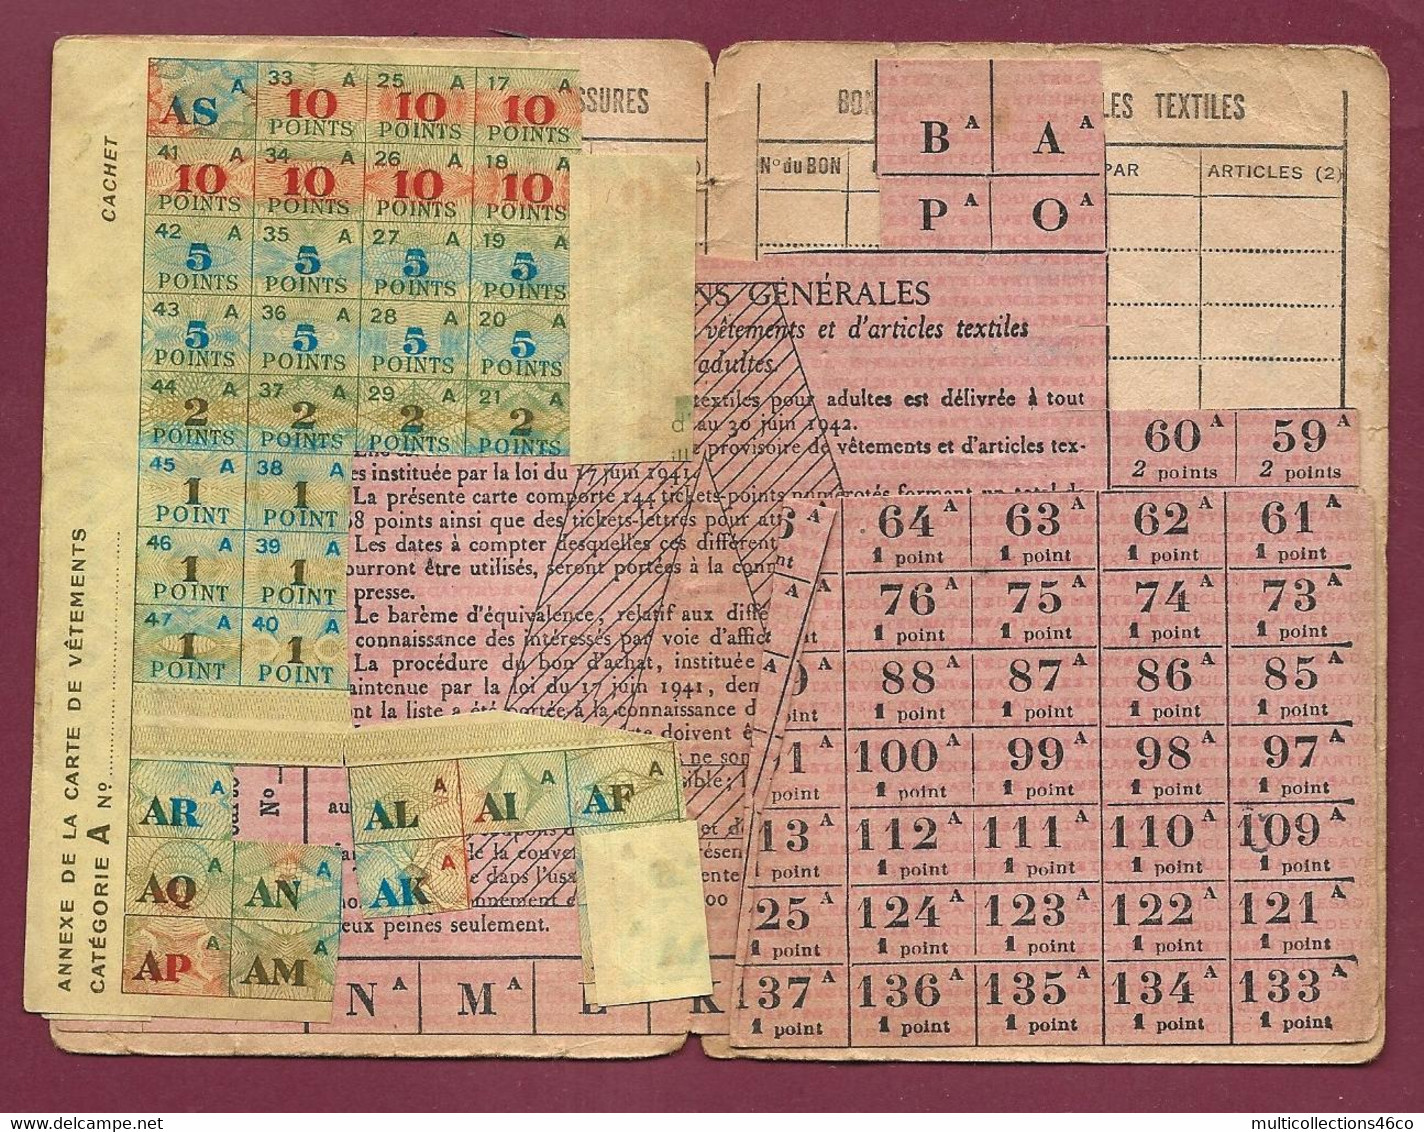 ANNEXE DE LA CARTE DE VÊTEMENTS
CATÉGORIE A Nº
CACHET
AS A
33 A 25 A 17 A
10 10 10
POINTS POINTS POINTS
41 A 34 A 26 A 18 A
10 10 10 10
POINTS POINTS POINTS POINTS
42 A 35 A 27 A 19 A
5 5 5 5
POINTS POINTS POINTS POINTS
43 A 36 A 28 A 20 A
5 5 5 5
POINTS POINTS POINTS POINTS
44 A 37 A 29 A 21 A
2 2 2 2
POINTS POINTS POINTS POINTS
45 A 38 A
1 1
POINT POINT
46 A 39 A
1 1
POINT POINT
47 A 40 A
1 1
POINT POINT
AR A AL A AI A AF A
AQ A AN A AK A
AP A AM A
No
SSURES
BON
LES TEXTILES
N° du BON
PAR
ARTICLES (2)
B A A A
P A O A
NS GÉNÉRALES
vêtements et d'articles textiles
adultes.
textiles pour adultes est délivrée à tout
au 30 juin 1942.
provisoire de vêtements et d'articles tex-
es instituée par la loi du 17 juin 1941.
La présente carte comporte 144 tickets-points numérotés formant un total de
8 points ainsi que des tickets-lettres pour
Les dates à compter desquelles ces différent
ourront être utilisés, seront portées à la conn
presse.
Le barème d'équivalence, relatif aux diffé
connaissance des intéressés par voie d'affic
La procédure du bon d'achat, instituée
aintenue par la loi du 17 juin 1941, dem
nt la liste a été portée à la connaissance d
te doivent ê
s ne son
sible;
au
pons d et de
le la couve résen
e dans l'us ente
onnement 00
eux peines seulement.
N A M A L K
60 A 59 A
2 points 2 points
64 A 63 A 62 A 61 A
1 point 1 point 1 point 1 point
76 A 75 A 74 A 73 A
1 point 1 point 1 point 1 point
88 A 87 A 86 A 85 A
point 1 point 1 point 1 point 1 point
100 A 99 A 98 A 97 A
point 1 point 1 point 1 point 1 point
13 A 112 A 111 A 110 A 109 A
1 point 1 point 1 point 1 point 1 point
25 A 124 A 123 A 122 A 121 A
1 point 1 point 1 point 1 point 1 point
137 A 136 A 135 A 134 A 133 A
1 point 1 point 1 point 1 point 1 point
multicollections46co